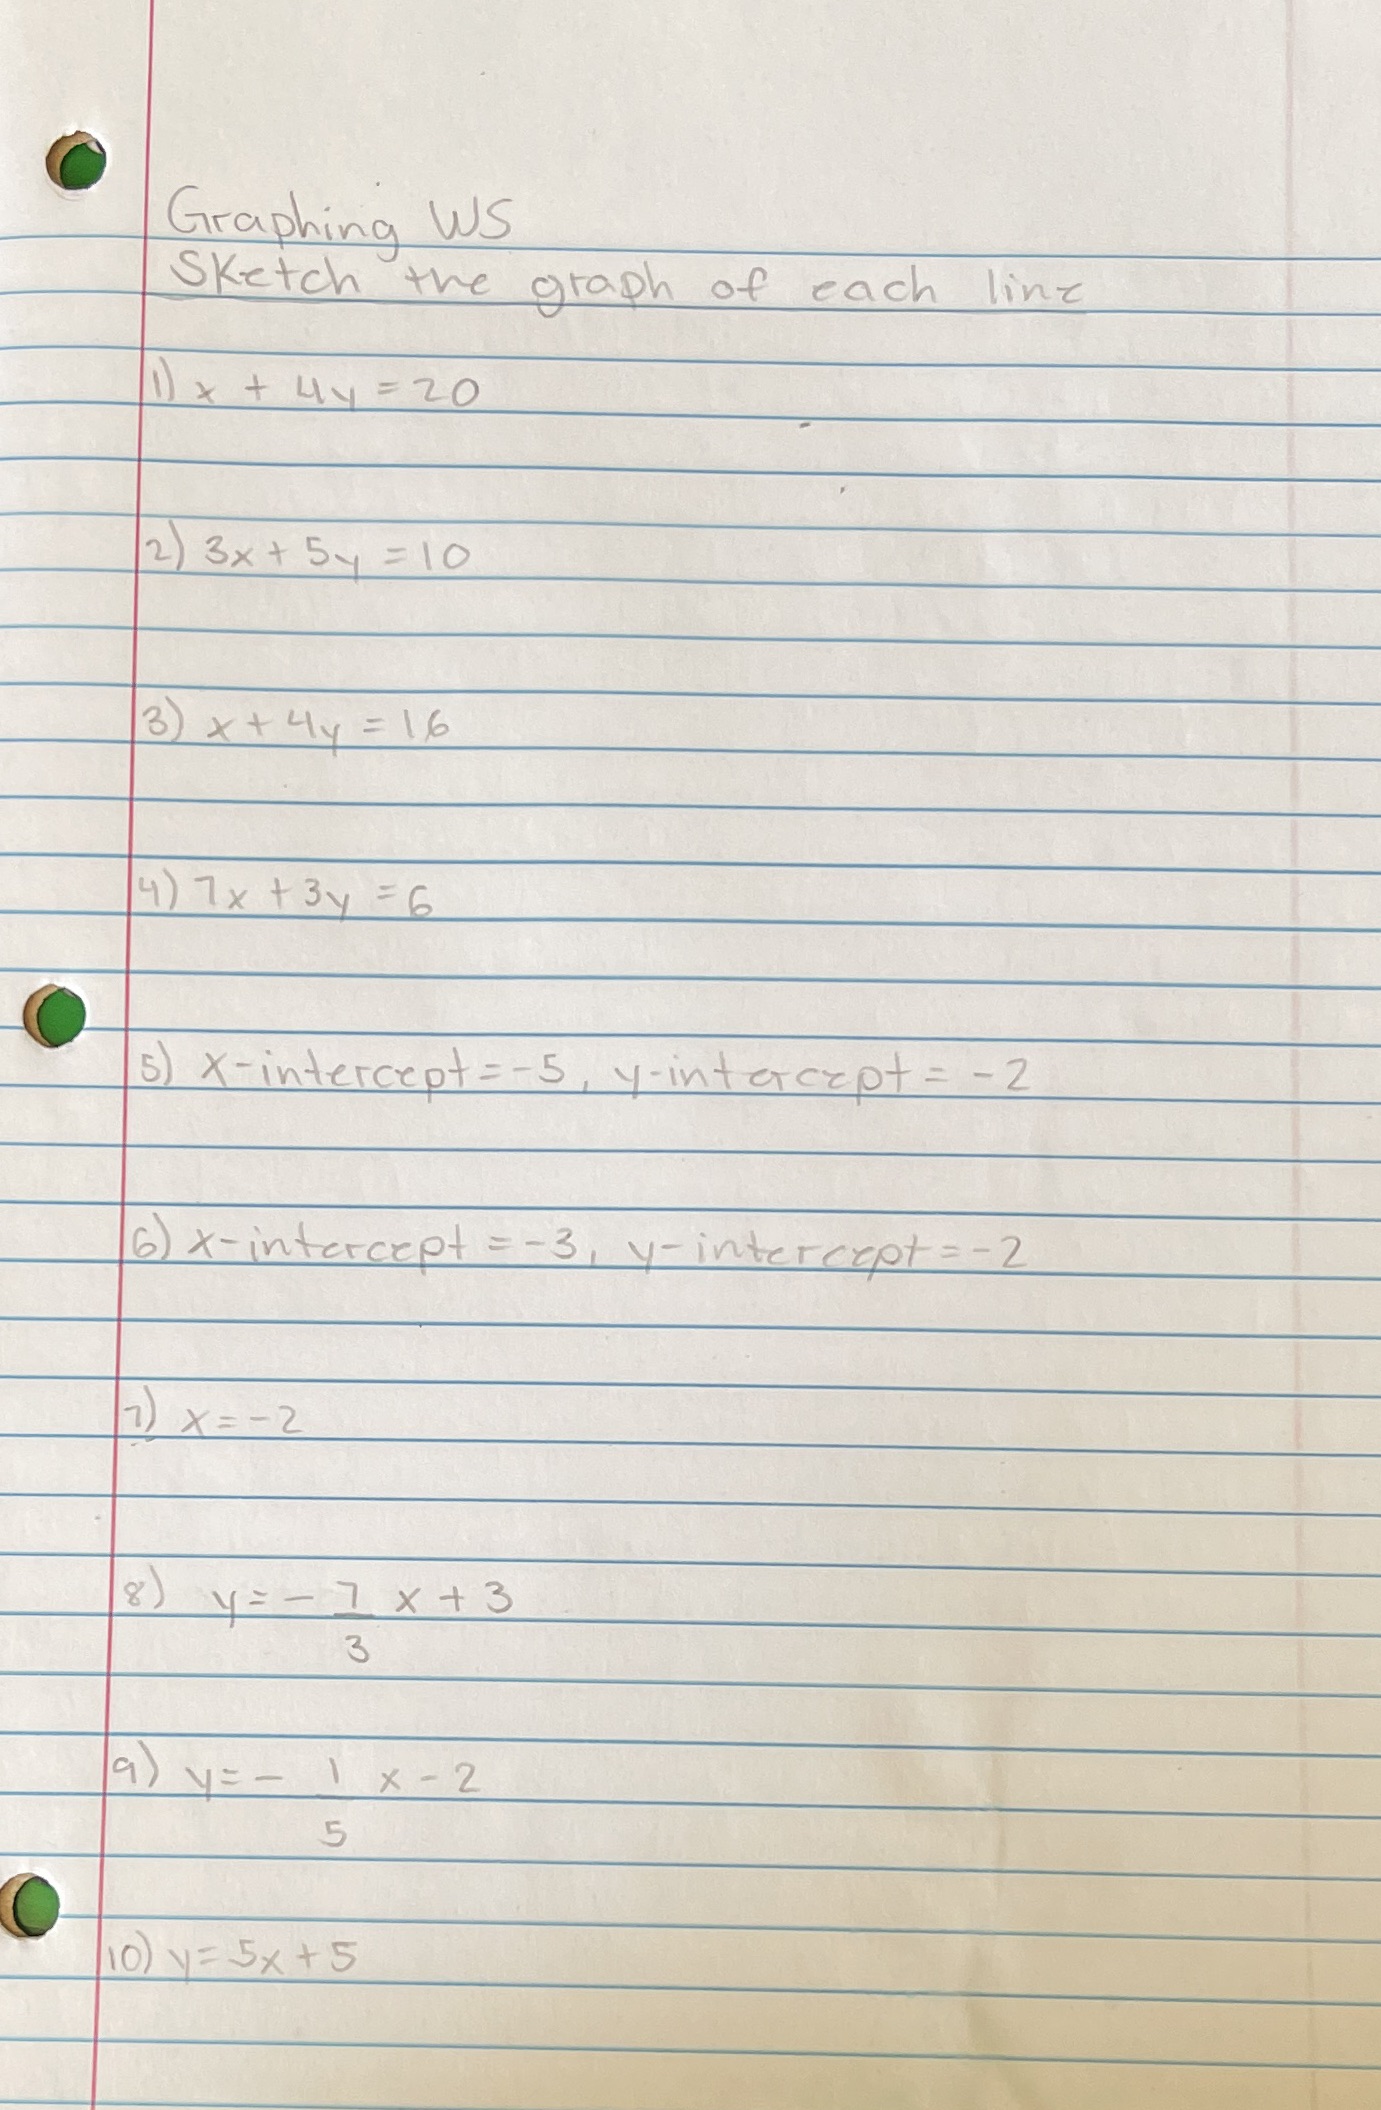 Graphing WS
Sketch the graph of each line
1) x + 4y = 20
2) 3x + 5y = 10
3) x + 4y = 16
4) 7x + 3y = 6
5) x-intercept = -5, y-intercept = -2
6) x-intercept = -3, y-intercept = -2
7) x = -2
8) y = - 7/3 x + 3
9) y = - 1/5 x - 2
10) y = 5x + 5